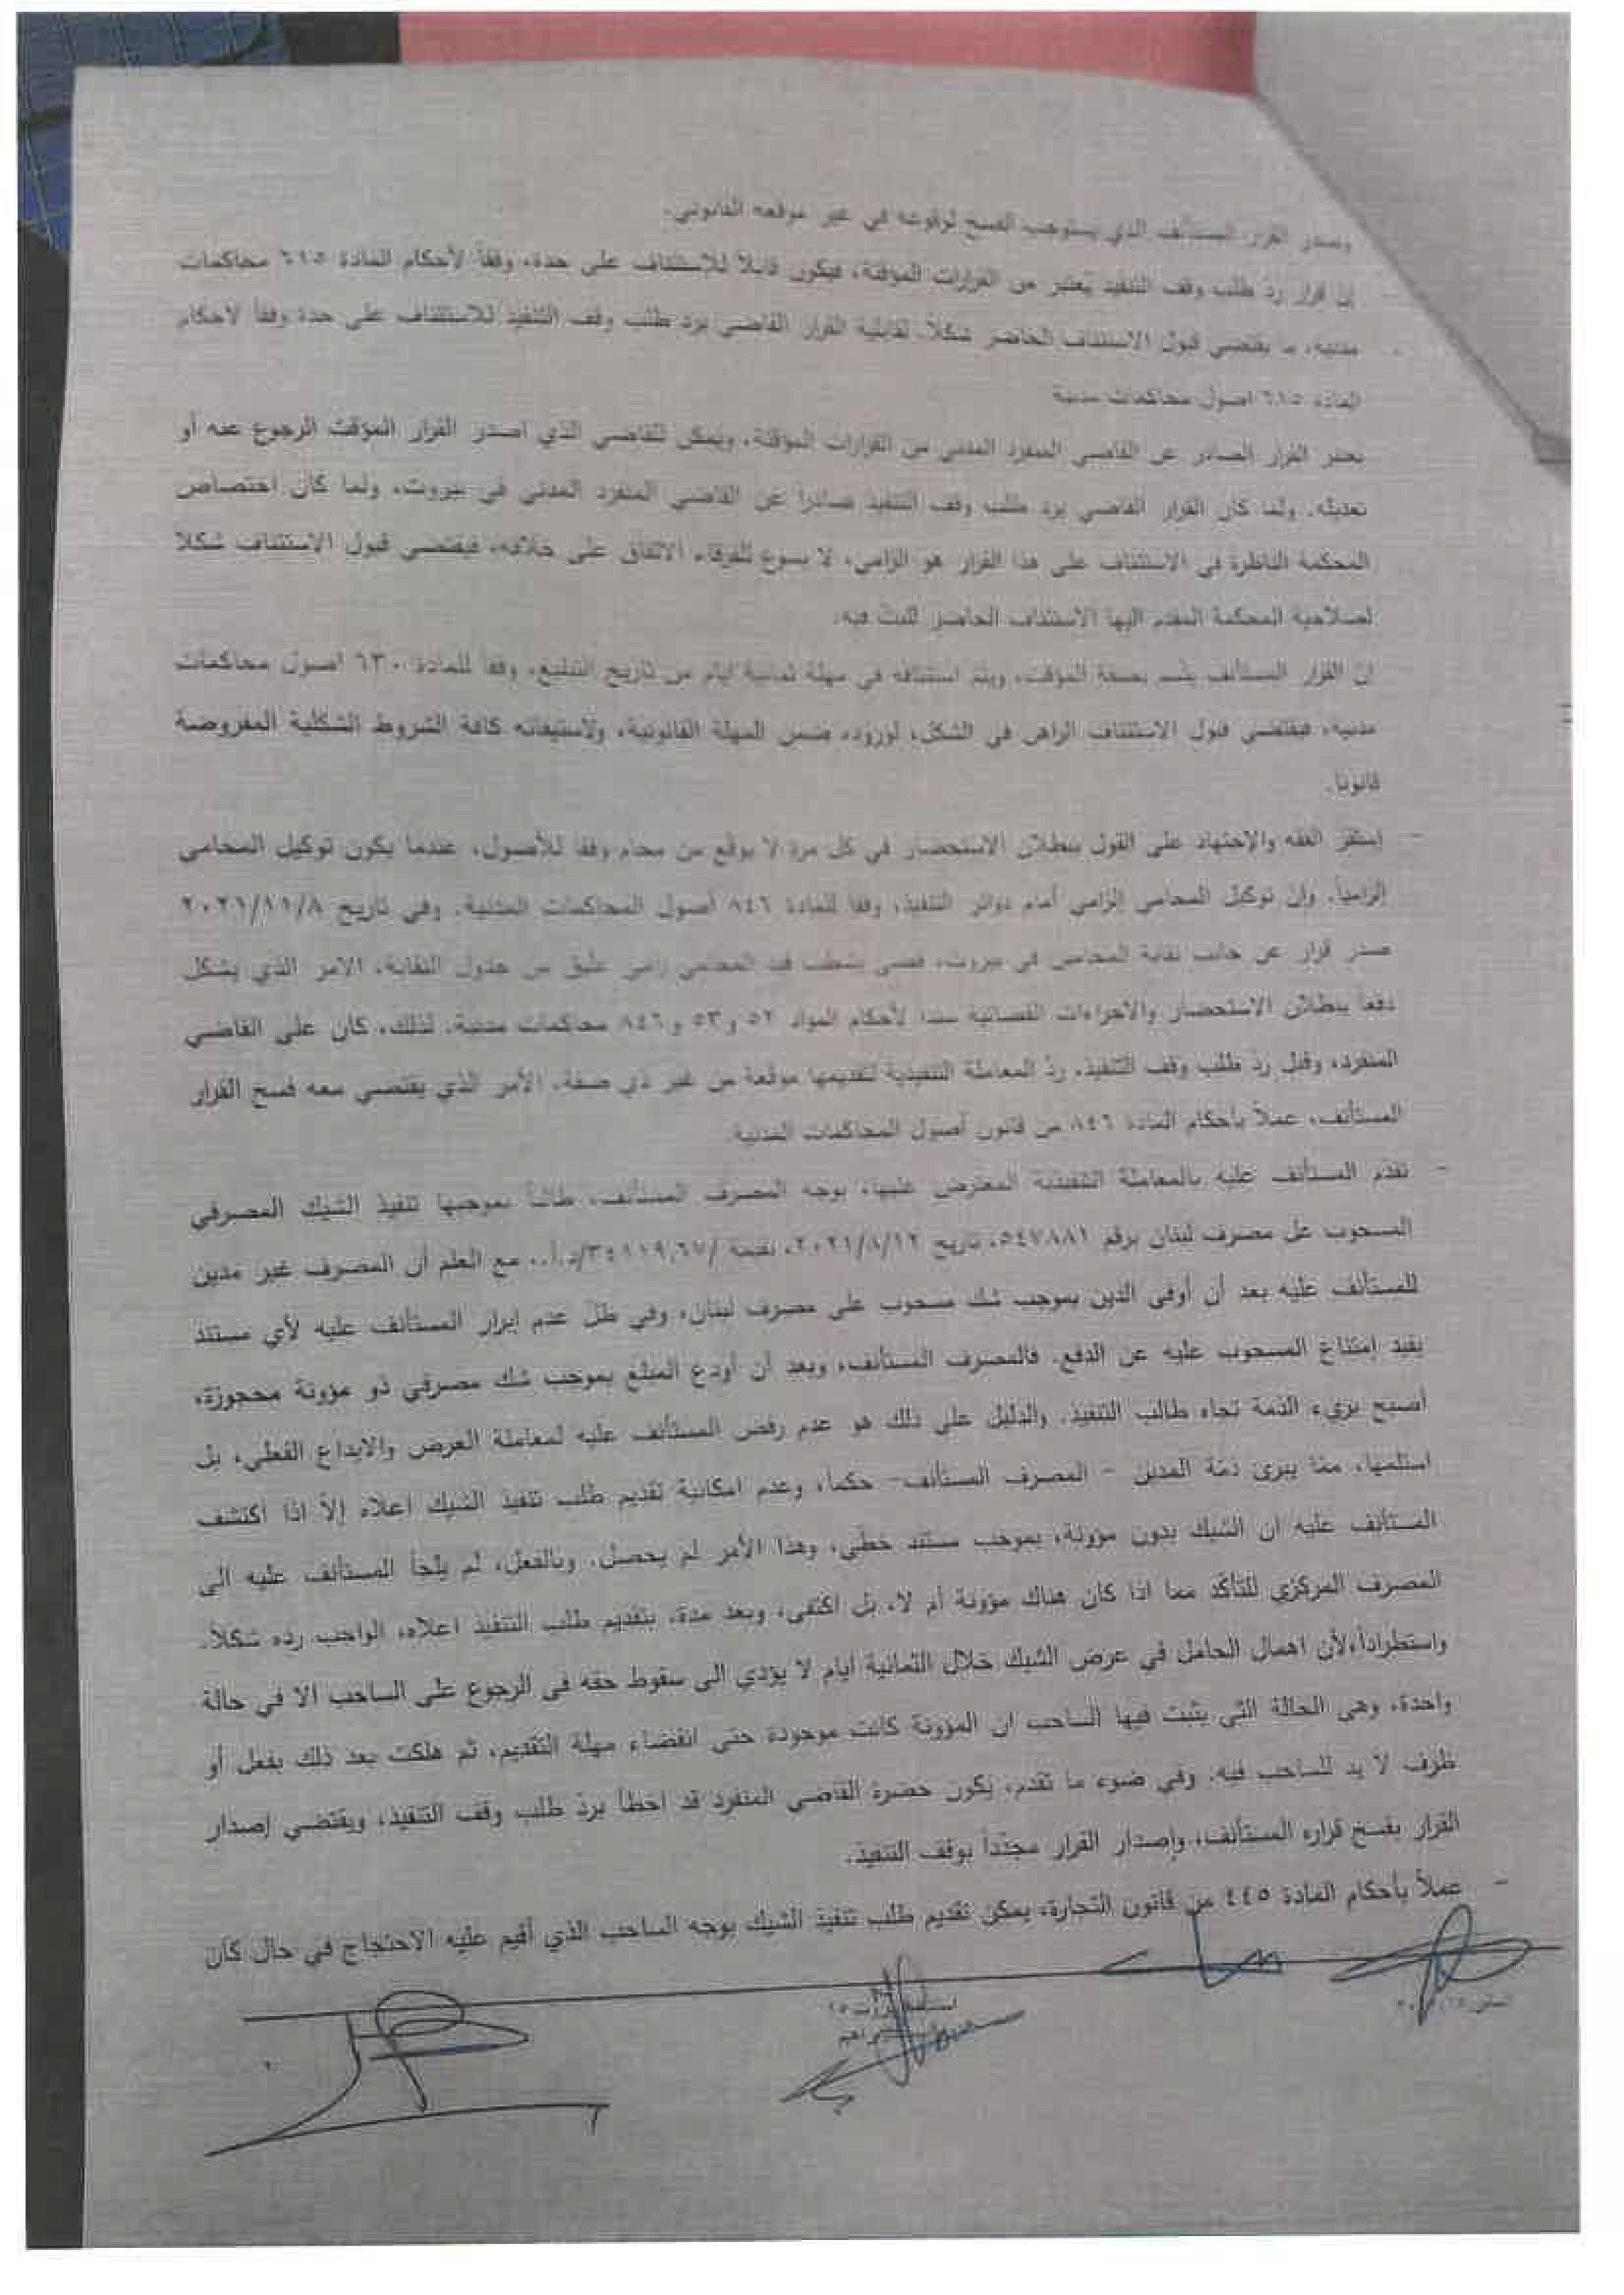 وصدر القرار المستأنف الذي يستوجب الفسخ لوقوعه في غير موقعه القانوني.
إن قرار ردّ طلب وقف التنفيذ يعتبر من القرارات المؤقتة، فيكون قابلاً للإستئناف على حدة، وفقاً لأحكام المادة ٦١٥ محاكمات
مدنية، ما يقتضي قبول الاستئناف الحاضر شكلاً، لقابلية القرار القاضي برد طلب وقف التنفيذ للاستئناف على حدة وفقاً لأحكام
المادة ٦١٥ اصول محاكمات مدنية
يعتبر القرار الصادر عن القاضي المنفرد المدني من القرارات المؤقتة، ويمكن للقاضي الذي اصدر القرار المؤقت الرجوع عنه أو
تعديله. ولما كان القرار القاضي برد طلب وقف التنفيذ صادرا عن القاضي المنفرد المدني في بيروت، ولما كان اختصاص
المحكمة الناظرة في الاستئناف على هذا القرار هو الزامي، لا يسوغ للفرقاء الاتفاق على خلافه، فيقتضي قبول الاستئناف شكلا
لصلاحية المحكمة المقدم اليها الاستئناف الحاضر للبت فيه.
ان القرار المستأنف يتّسم بصفة المؤقت، ويتم استئنافه في مهلة ثمانية ايام من تاريخ التبليغ، وفقا للمادة ٦٣٠ اصول محاكمات
مدنية، فيقتضي قبول الاستئناف الراهن في الشكل، لوروده ضمن المهلة القانونية، ولاستيفائه كافة الشروط الشكلية المفروضة
قانونا.
- إستقر الفقه والإجتهاد على القول ببطلان الاستحضار في كل مرة لا يوقع من محام وفقا للأصول، عندما يكون توكيل المحامي
إلزامياً. وإن توكيل المحامي إلزامي أمام دوائر التنفيذ، وفقا للمادة ٨٤٦ أصول المحاكمات المدنية. وفي تاريخ ٢٠٢١/١١/٨
صدر قرار عن جانب نقابة المحامين في بيروت، قضى بشطب قيد المحامي رامي عليق من جدول النقابة، الامر الذي يشكل
دفعاً ببطلان الاستحضار والاجراءات القضائية سندا لأحكام المواد ٥٢ و٥٣ و٨٤٦ محاكمات مدنية. لذلك، كان على القاضي
المنفرد، وقبل رد طلب وقف التنفيذ، ردّ المعاملة التنفيذية لتقديمها موقعة من غير ذي صفة، الأمر الذي يقتضي معه فسخ القرار
المستأنف، عملاً بأحكام المادة ٨٤٦ من قانون أصول المحاكمات المدنية.
- تقدّم المستأنف عليه بالمعاملة التنفيذية المعترض عليها، بوجه المصرف المستأنف، طالباً بموجبها تنفيذ الشيك المصرفي
المسحوب على مصرف لبنان برقم ٥٤٧٨٨١، تاريخ ٢٠٢١/٨/١٢، بقيمة /٣٤١١٩,٦٧/د.أ.. مع العلم أن المصرف غير مدين
للمستأنف عليه بعد أن أوفى الدين بموجب شك مسحوب على مصرف لبنان، وفي ظل عدم إبراز المستأنف عليه لأي مستند
يفيد إمتناع المسحوب عليه عن الدفع. فالمصرف المستأنف، وبعد أن أودع المبلغ بموجب شك مصرفي ذو مؤونة محجوزة،
أصبح بريء الذمة تجاه طالب التنفيذ. والدليل على ذلك هو عدم رفض المستأنف عليه لمعاملة العرض والايداع الفعلي، بل
استلمها، ممّا يبرئ ذمّة المدين - المصرف المستأنف- حكماً، وعدم امكانية تقديم طلب تنفيذ الشيك اعلاه إلاّ اذا اكتشف
المستأنف عليه ان الشيك بدون مؤونة، بموجب مستند خطّي، وهذا الأمر لم يحصل. وبالفعل، لم يلجأ المستأنف عليه الى
المصرف المركزي للتأكد مما اذا كان هناك مؤونة أم لا، بل اكتفى، وبعد مدة، بتقديم طلب التنفيذ اعلاه، الواجب رده شكلاً.
واستطراداً،لأن اهمال الحامل في عرض الشيك خلال الثمانية أيام لا يؤدي الى سقوط حقه في الرجوع على الساحب الا في حالة
واحدة، وهي الحالة التي يثبت فيها الساحب ان المؤونة كانت موجودة حتى انقضاء مهلة التقديم، ثم هلكت بعد ذلك بفعل أو
ظرف لا يد للساحب فيه. وفي ضوء ما تقدم، يكون حضرة القاضي المنفرد قد اخطأ بردّ طلب وقف التنفيذ، ويقتضي إصدار
القرار بفسخ قراره المستأنف، وإصدار القرار مجدّداً بوقف التنفيذ.
- عملاً بأحكام المادة ٤٤٥ من قانون التجارة، يمكن تقديم طلب تنفيذ الشيك بوجه الساحب الذي أقيم عليه الاحتجاج في حال كان